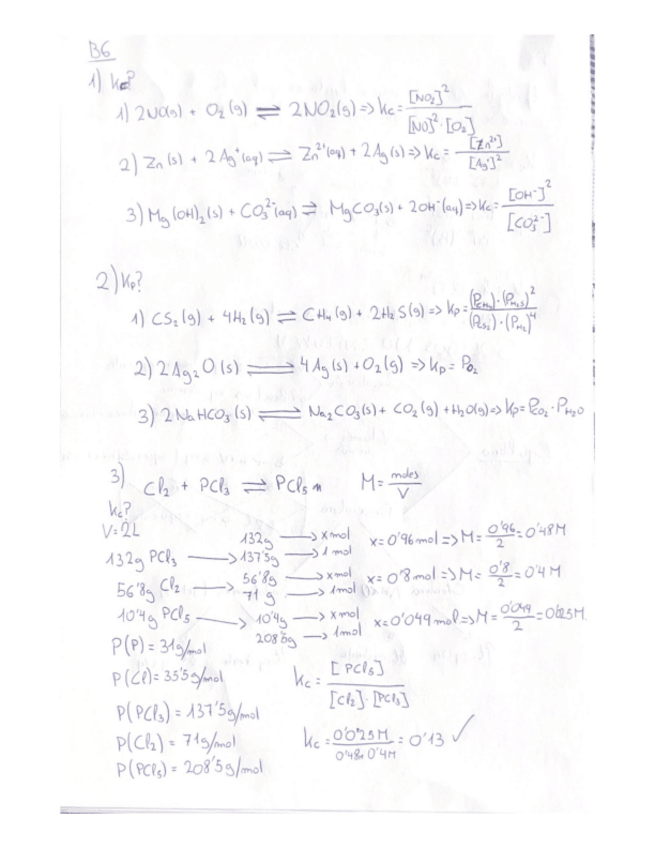 B6
1) Kc?
1) 2NO(g) + O₂(g) ⇌ 2NO₂(g) => Kc = [NO₂]² / [NO]²·[O₂]
2) Zn(s) + 2Ag⁺(aq) ⇌ Zn²⁺(aq) + 2Ag(s) => Kc = [Zn²⁺] / [Ag⁺]²
3) Mg(OH)₂(s) + CO₃²⁻(aq) ⇌ MgCO₃(s) + 2OH⁻(aq) => Kc = [OH⁻]² / [CO₃²⁻]
2) Kp?
1) CS₂(g) + 4H₂(g) ⇌ CH₄(g) + 2H₂S(g) => Kp = (P_CH₄)·(P_H₂S)² / (P_CS₂)·(P_H₂)⁴
2) 2Ag₂O(s) ⇌ 4Ag(s) + O₂(g) => Kp = P_O₂
3) 2NaHCO₃(s) ⇌ Na₂CO₃(s) + CO₂(g) + H₂O(g) => Kp = P_CO₂·P_H₂O
3) Cl₂ + PCl₃ ⇌ PCl₅ M = moles / V
Kc?
V = 2L
132g PCl₃ → 132g → x mol 137'5g → 1 mol x = 0'96 mol => M = 0'96 / 2 = 0'48M
56'8g Cl₂ → 56'8g → x mol 71g → 1mol x = 0'8 mol => M = 0'8 / 2 = 0'4M
10'4g PCl₅ → 10'4g → x mol 208'5g → 1mol x = 0'049 mol => M = 0'049 / 2 = 0'025M
P(P) = 31g/mol
P(Cl) = 35'5g/mol Kc = [PCl₅] / [Cl₂]·[PCl₃]
P(PCl₃) = 137'5g/mol
P(Cl₂) = 71g/mol Kc = 0'025M / 0'48·0'4M = 0'13 ✓
P(PCl₅) = 208'5g/mol